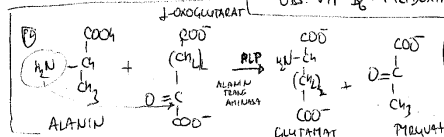 α-OXOGLUTARAT
COOH
H₂N-CH
CH₃
ALANIN
+
COO⁻
(CH₂)₂
O=C
COO⁻
PLP
ALANIN
TRANS
AMINASA
COO⁻
H₂N-CH
(CH₂)₂
COO⁻
GLUTAMAT
+
COO⁻
O=C
CH₃
PIRUVAT